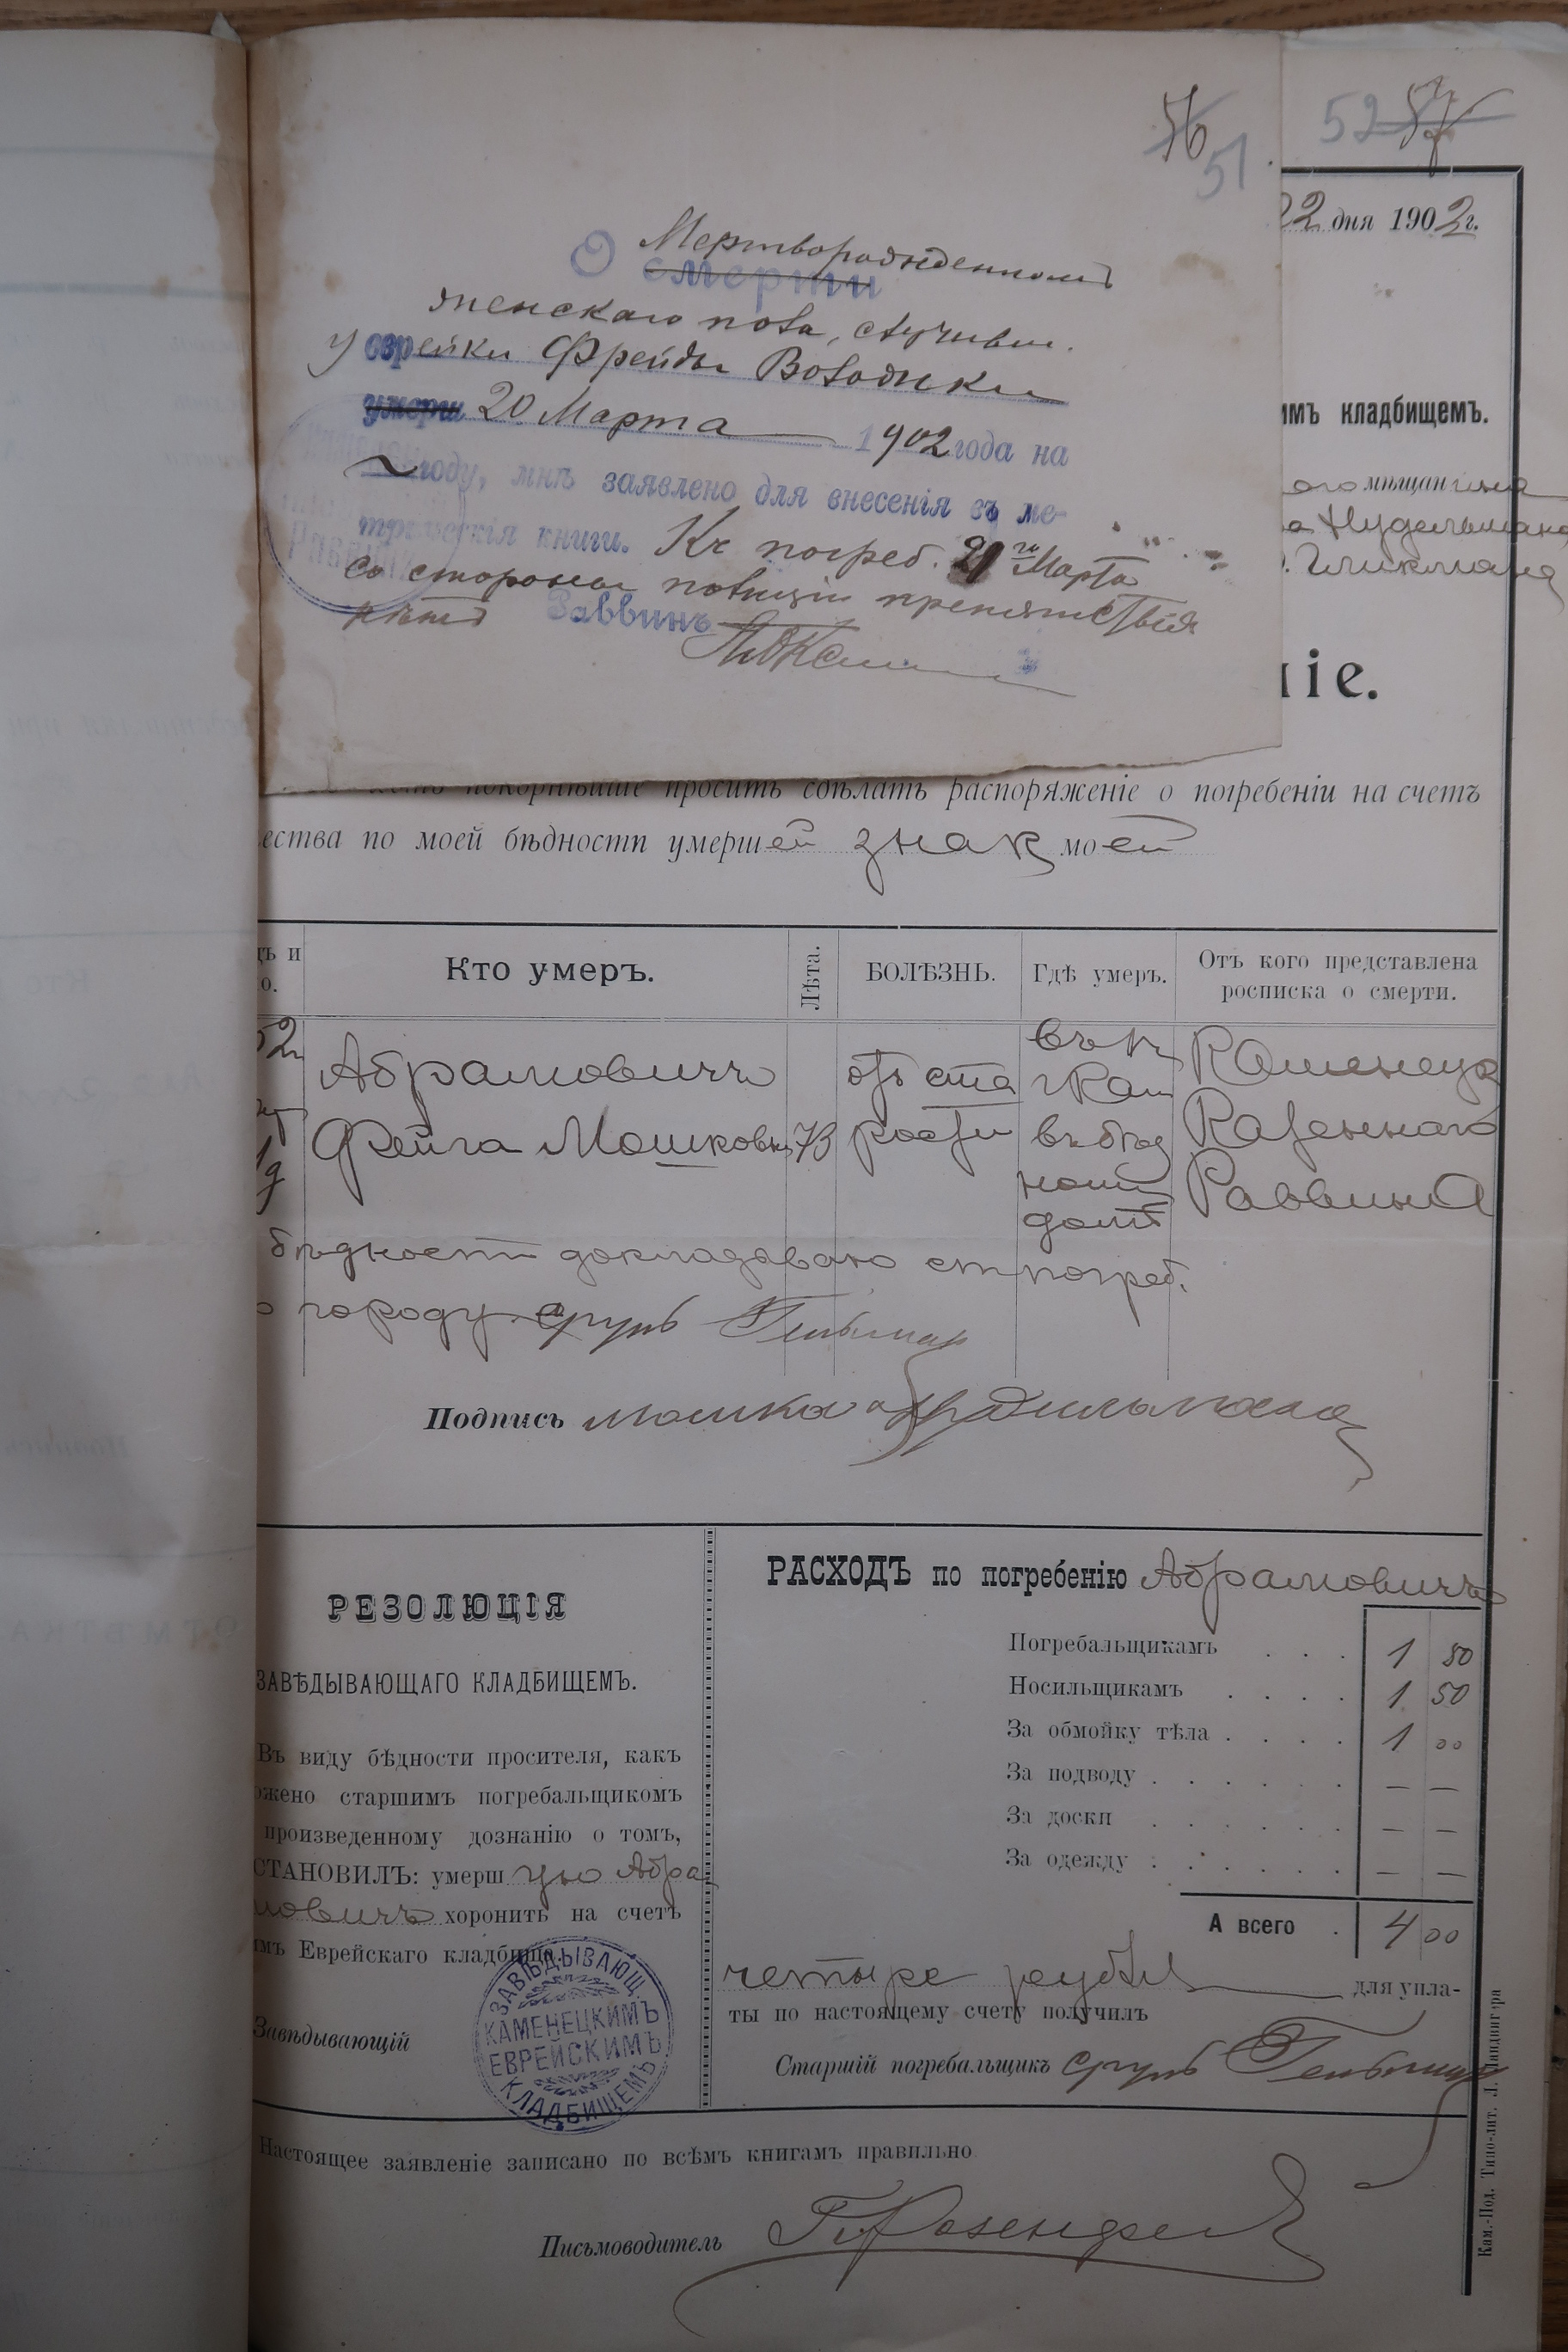 56
51
О смерти
Мертворожденномъ
женскаго пола, случивш.
у еврейки Фрейды Володики
умерш 20 Марта 1902 года на
году, мнѣ заявлено для внесенія въ ме-
трическія книги. Къ погреб. 21го Марта
со стороны полиціи препятствія
нѣтъ Раввинъ
52 57
22 дня 1902 г.
имъ кладбищемъ.
ого мѣщанина
а Нудельмана
Гликмана
ніе.
покорнѣйше просить сдѣлать распоряженіе о погребеніи на счетъ
ества по моей бѣдности умершей знак моей
дъ и
о.
Кто умеръ.
Лѣта.
БОЛѢЗНЬ.
Гдѣ умеръ.
Отъ кого представлена
росписка о смерти.
Абрамовичъ
Фейга Мошковн
73
отъ ста
рости
въ
г Кам
въ бѣд
ном
домѣ
Каменецк
Казеннаго
Раввина
бѣдности докладоваю ст погреб.
о городу Сруль Гельман
Подпись Мошка Нудильмана
РЕЗОЛЮЦІЯ
ЗАВѢДЫВАЮЩАГО КЛАДБИЩЕМЪ.
Въ виду бѣдности просителя, какъ
ожено старшимъ погребальщикомъ
произведенному дознанію о томъ,
СТАНОВИЛЪ: умерш ую Абра
мовичъ хоронить на счетъ
имъ Еврейскаго кладбища.
Завѣдывающій
ЗАВѢДЫВАЮЩ.
КАМЕНЕЦКИМЪ
ЕВРЕЙСКИМЪ
КЛАДБИЩЕМЪ
РАСХОДЪ по погребенію Абрамовичъ
Погребальщикамъ . . . 1 50
Носильщикамъ . . . . 1 50
За обмойку тѣла . . . . 1 00
За подводу . . . . . . — —
За доски . . . . . . — —
За одежду . . . . . . — —
А всего . 4 00
четыре рубля для упла-
ты по настоящему счету получилъ
Старшій погребальщикъ Сруль Гельман
Настоящее заявленіе записано по всѣмъ книгамъ правильно
Письмоводитель Г. Розенфел
Кам.-Под. Типо-лит. Л. Ландвигера